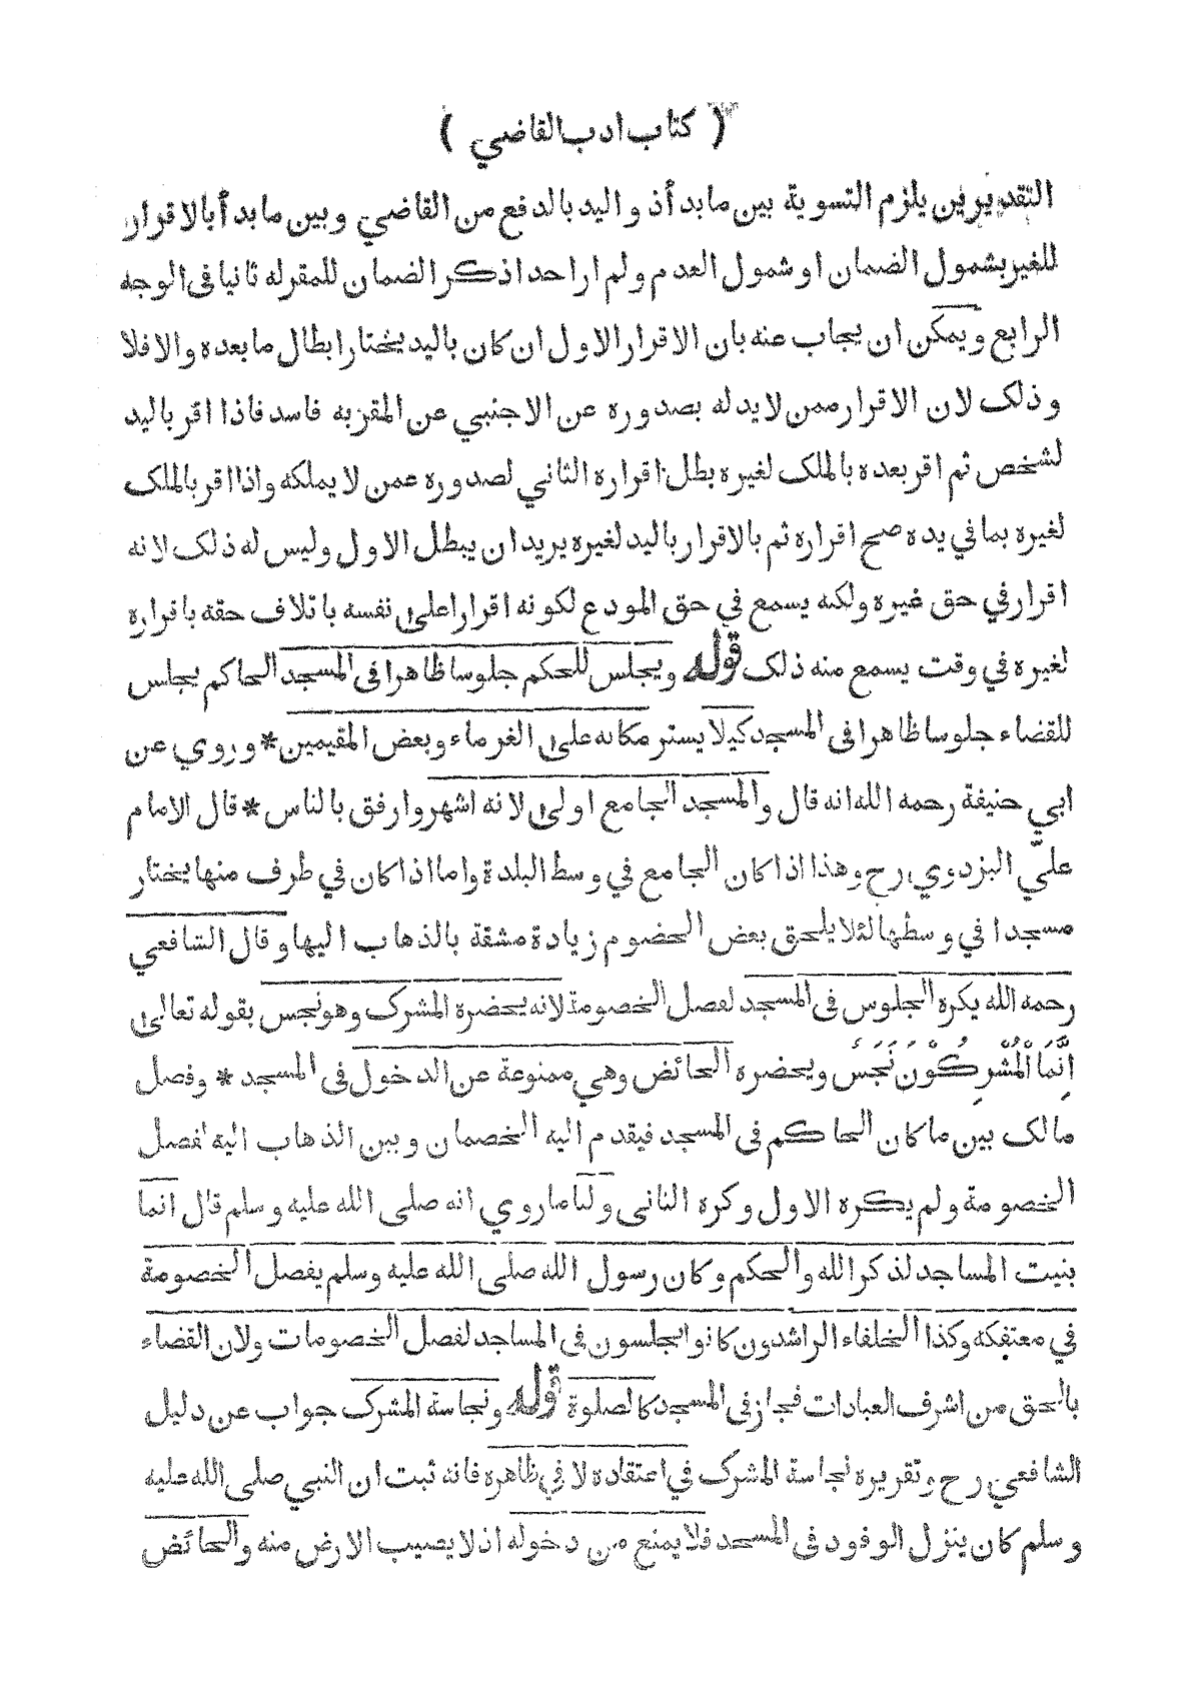 ( كتاب ادب القاضي )
التقديرين يلزم التسوية بين ما بدأ ذو اليد بالدفع من القاضي وبين ما بدأ بالاقرار
للغير بشمول الضمان او شمول العدم ولم ار احدا ذكر الضمان للمقر له ثانيا في الوجه
الرابع ويمكن ان يجاب عنه بان الاقرار الاول ان كان باليد يختار ابطال ما بعده والا فلا
وذلك لان الاقرار ممن لا يد له بصدوره عن الاجنبي عن المقر به فاسد فاذا اقر باليد
لشخص ثم اقر بعده بالملك لغيره بطل اقراره الثاني لصدوره عمن لا يملكه واذا اقر بالملك
لغيره بما في يده صح اقراره ثم بالاقرار باليد لغيره يريد ان يبطل الاول وليس له ذلك لانه
اقرار في حق غيره ولكنه يسمع في حق المودع لكونه اقرارا على نفسه باتلاف حقه باقراره
لغيره في وقت يسمع منه ذلك قوله ويجلس للحكم جلوسا ظاهرا في المسجد الحاكم يجلس
للقضاء جلوسا ظاهرا في المسجد كيلا يستر مكانه على الغرماء وبعض المقيمين * وروي عن
ابي حنيفة رحمه الله انه قال والمسجد الجامع اولى لانه اشهر وارفق بالناس * قال الامام
عليّ البزدوي رح وهذا اذا كان الجامع في وسط البلدة واما اذا كان في طرف منها يختار
مسجدا في وسطها لئلا يلحق بعض الخصوم زيادة مشقة بالذهاب اليها وقال الشافعي
رحمه الله يكره الجلوس في المسجد لفصل الخصومة لانه يحضره المشرك وهو نجس بقوله تعالى
اِنَّمَا الْمُشْرِكُوْنَ نَجَسٌ ويحضره الحائض وهي ممنوعة عن الدخول في المسجد * وفصل
مالك بين ما كان الحاكم في المسجد فيقدم اليه الخصمان وبين الذهاب اليه لفصل
الخصومة ولم يكره الاول وكره الثاني ولنا ما روي انه صلى الله عليه وسلم قال انما
بنيت المساجد لذكر الله والحكم وكان رسول الله صلى الله عليه وسلم يفصل الخصومة
في معتكفه وكذا الخلفاء الراشدون كانوا يجلسون في المساجد لفصل الخصومات ولان القضاء
بالحق من اشرف العبادات فجاز في المسجد كالصلوة قوله ونجاسة المشرك جواب عن دليل
الشافعي رح وتقريره نجاسة المشرك في اعتقاده لا في ظاهره فانه ثبت ان النبي صلى الله عليه
وسلم كان ينزل الوفود في المسجد فلا يمنع من دخوله اذ لا يصيب الارض منه والحائض